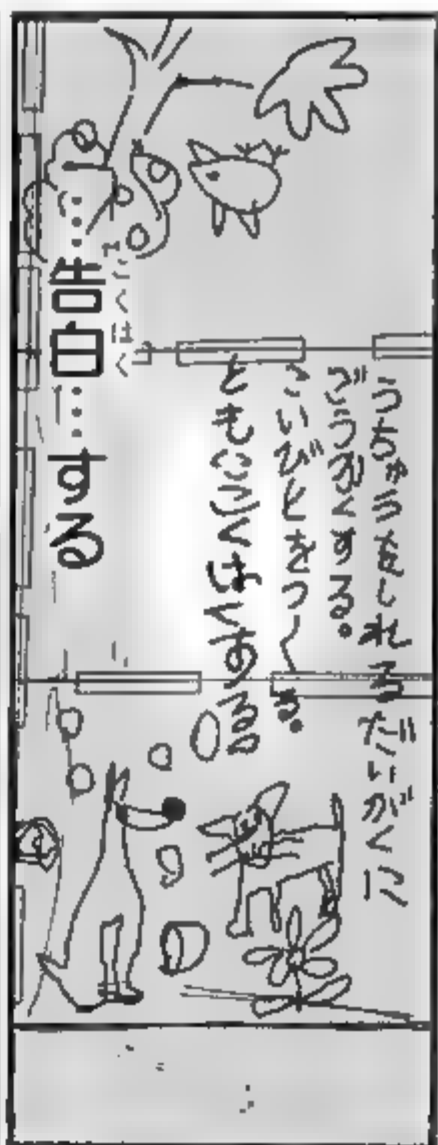 うちゅうをしれるだいがくに
ごうかくする。
こいびとをつくる。
こくはくする。
こくはく
…告白…する